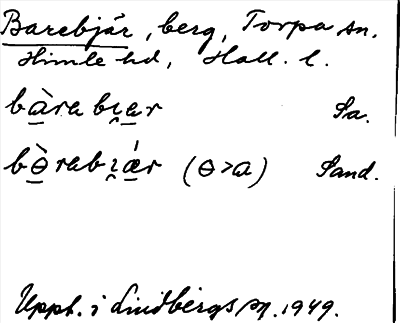 Barebjär, berg, Torpa sn.
Himle hd, Hall. l.
bàrabɪ̯ar Sa.
bɵ̀rabɪ̯ǽr (ɵ>a) Sand.
Uppt. i Lindbergs
1949.